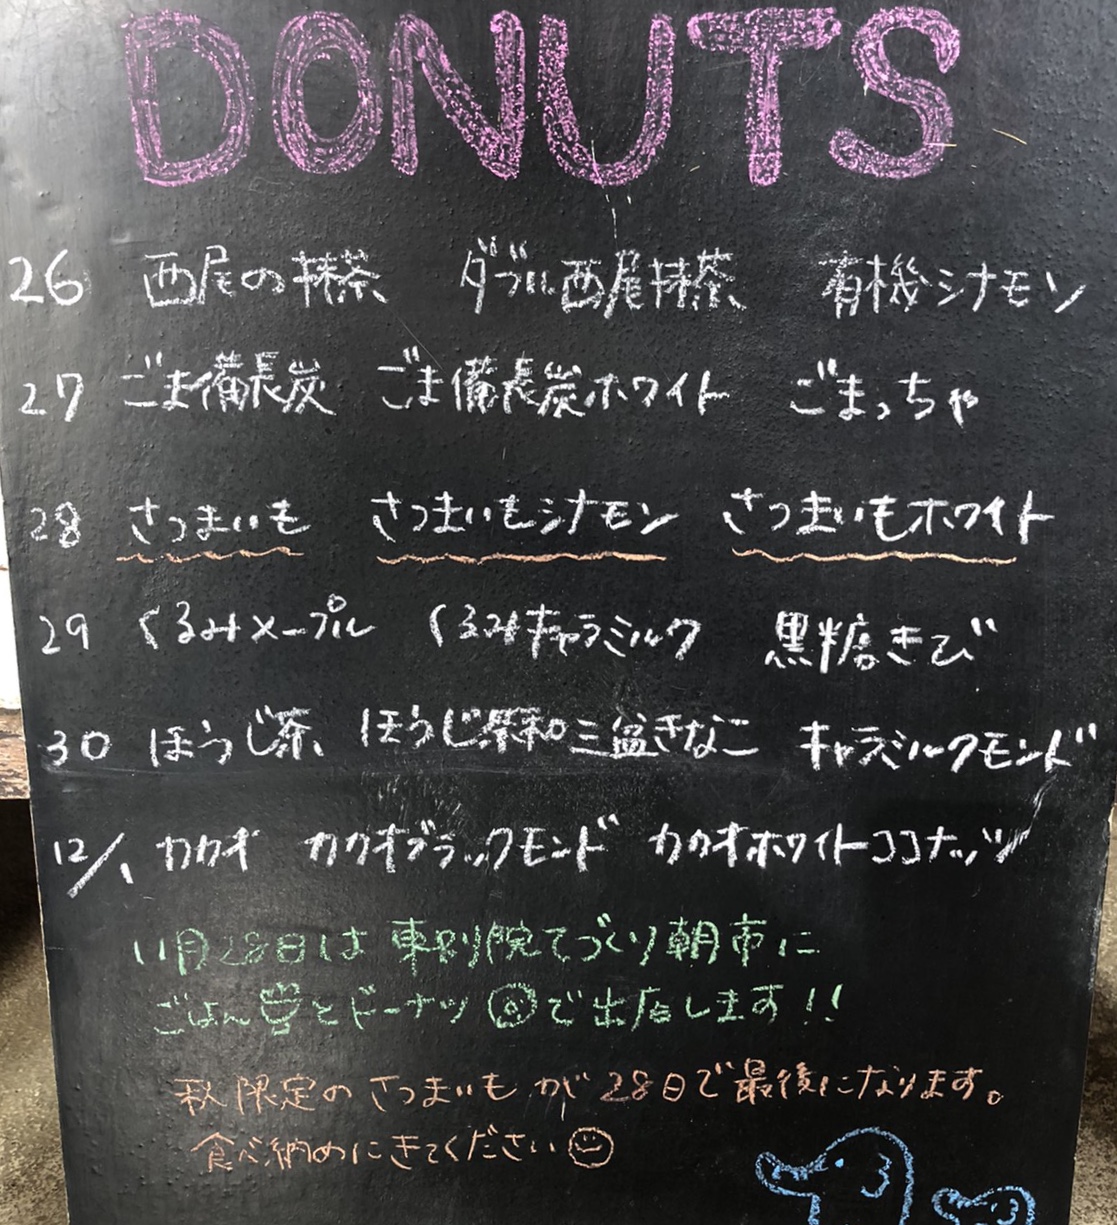 DONUTS
26 西尾の抹茶 ダブル西尾抹茶 有機シナモン
27 ごま備長炭 ごま備長炭ホワイト ごまっちゃ
28 さつまいも さつまいもシナモン さつまいもホワイト
29 くるみメープル くるみキャラミルク 黒糖きび
30 ほうじ茶 ほうじ茶和三盆きなこ キャラミルクモンド
12/1 カカオ カカオブラックモンド カカオホワイトココナッツ
11月28日は東別院てづくり朝市に
ごはんとドーナツで出店します!!
秋限定のさつまいもが28日で最後になります。
食べ納めにきてください